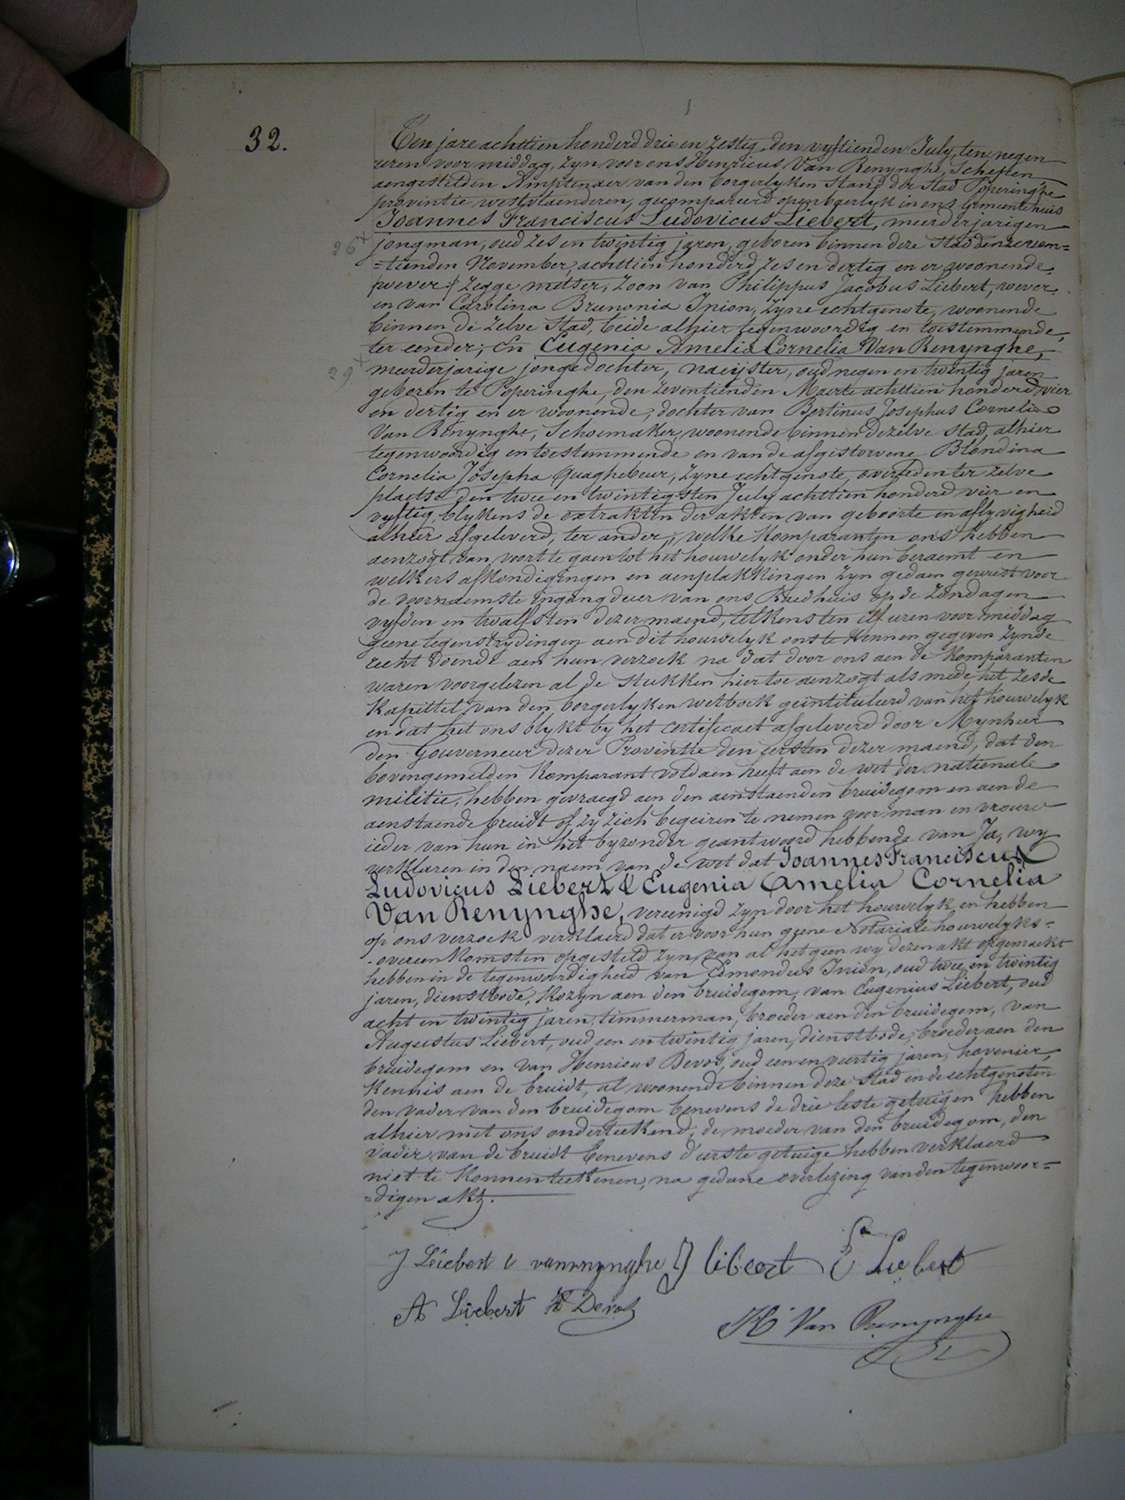 32.
Ten jare achttien honderd drie en zestig den vyftienden July, ten negen
uren voor middag, zyn voor ons Henricus Van Renynghe, Schepen
aengestelden Amptenaer van den borgerlyken Stand der Stad Poperinghe
provintie westvlaenderen, gecompareerd openbaerlyk in ons Gemeentehuis
Joannes Franciscus Ludovicus Liebert, meerderjarigen
26 x
jongman, oud zes en twintig jaren, geboren binnen deze Stad den zeven-
=tienden November, achttien honderd zes en dertig en er woonende,
wever zegge metser, zoon van Philippus Jacobus Liebert, wever
en van Carolina Brunonia Inion, zyne echtgenote, woonende
binnen de zelve Stad, beide alhier tegenwoordig en toestemmende,
ter eender; En Eugenia Amelia Cornelia Van Renynghe,
29 x
meerderjarige jonge dochter, naeijster, oud negen en twintig jaren
geboren te Poperinghe, den zeventienden Maerte achttien honderd vier
en dertig en er woonende, dochter van Bertinus Josephus Cornelis
Van Renynghe, Schoemaker, woonende binnen dezelve Stad, alhier
tegenwoordig en toestemmende en van de afgestorvene Blondina
Cornelia Josepha Quaghebeur, zyne echtgenote, overleden ter zelve
plaets den twee en twintigsten July achttien honderd vier en
vyftig, blykens de extrakten der akten van geboorte en aflyvigheid
alhier afgeleverd, ter ander; welke Komparanten ons hebben
aenzogt van voort te gaen tot het houwelyk onder hun beraemt en
welkers afkondigingen en aenplakkingen zyn gedaen geweest voor
de voornaemste ingangdeur van ons Raedhuis op de Zondagen
vyfden en twaelfsten dezer maend, telkens ten elf uren voor middag
geene tegenstrydingen aen dit houwelyk ons te Kennen gegeven zynde
recht doende aen hun verzoek na dat door ons aen de Komparanten
waren voorgelezen al de Stukken hiertoe aenzogt als mede het zesde
Kapittel van den borgerlyken wetboek geintituleerd van het houwelyk
en dat het ons blykt by het certificaet afgeleverd door Mynheer
den Gouverneur dezer Provintie den eersten dezer maend, dat den
bovengemelden Komparant voldaen heeft aen de wet der nationale
militie, hebben gevraegd aen den aenstaenden bruidegom en aen de
aenstaende bruidt of zy zich begeiren te nemen voor man en vrouw
ieder van hun in het byzonder geantwoord hebbende van Ja, wy
verklaren in den naem van de wet dat Joannes Franciscus
Ludovicus Liebert & Eugenia Amelia Cornelia
Van Renynghe, vereenigd zyn door het houwelyk, en hebben
op ons verzoek verklaerd dat er voor hun geene Notariale houwelyks-
-overeenkomsten opgesteld zyn, van al het geen wy dezen akt opgemaekt
hebben in de tegenwoordigheid van Edmondus Inion, oud twee en twintig
jaren, dienstbode, Kozyn aen den bruidegom, van Eugenius Liebert, oud
acht en twintig jaren, timmerman, broeder aen den bruidegom, van
Augustus Liebert, oud een en twintig jaren, dienstbode, broeder aen den
bruidegom en van Henricus Devos, oud een en veertig jaren, hovenier,
Kennis aen de bruidt, al woonende binnen deze Stad en de echtgenoten
den vader van den bruidegom benevens de drie leste getuigen hebben
alhier met ons onderteekend; de moeder van den bruidegom, den
vader van de bruidt benevens d'eerste getuige hebben verklaerd
niet te Konnen teekenen, na gedane overlezing van den tegenwoor-
=digen akt.
J Liebert E vanrenynghe J libeert E Liebert
A Liebert H Devos
H Van Renynghe